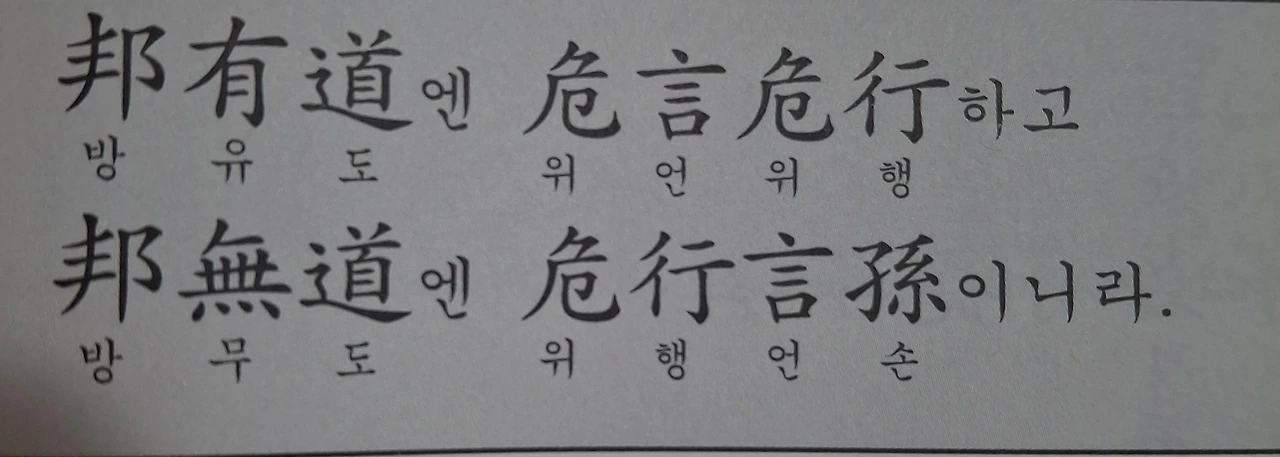 邦有道엔 危言危行하고
방 유 도 위 언 위 행
邦無道엔 危行言孫이니라.
방 무 도 위 행 언 손